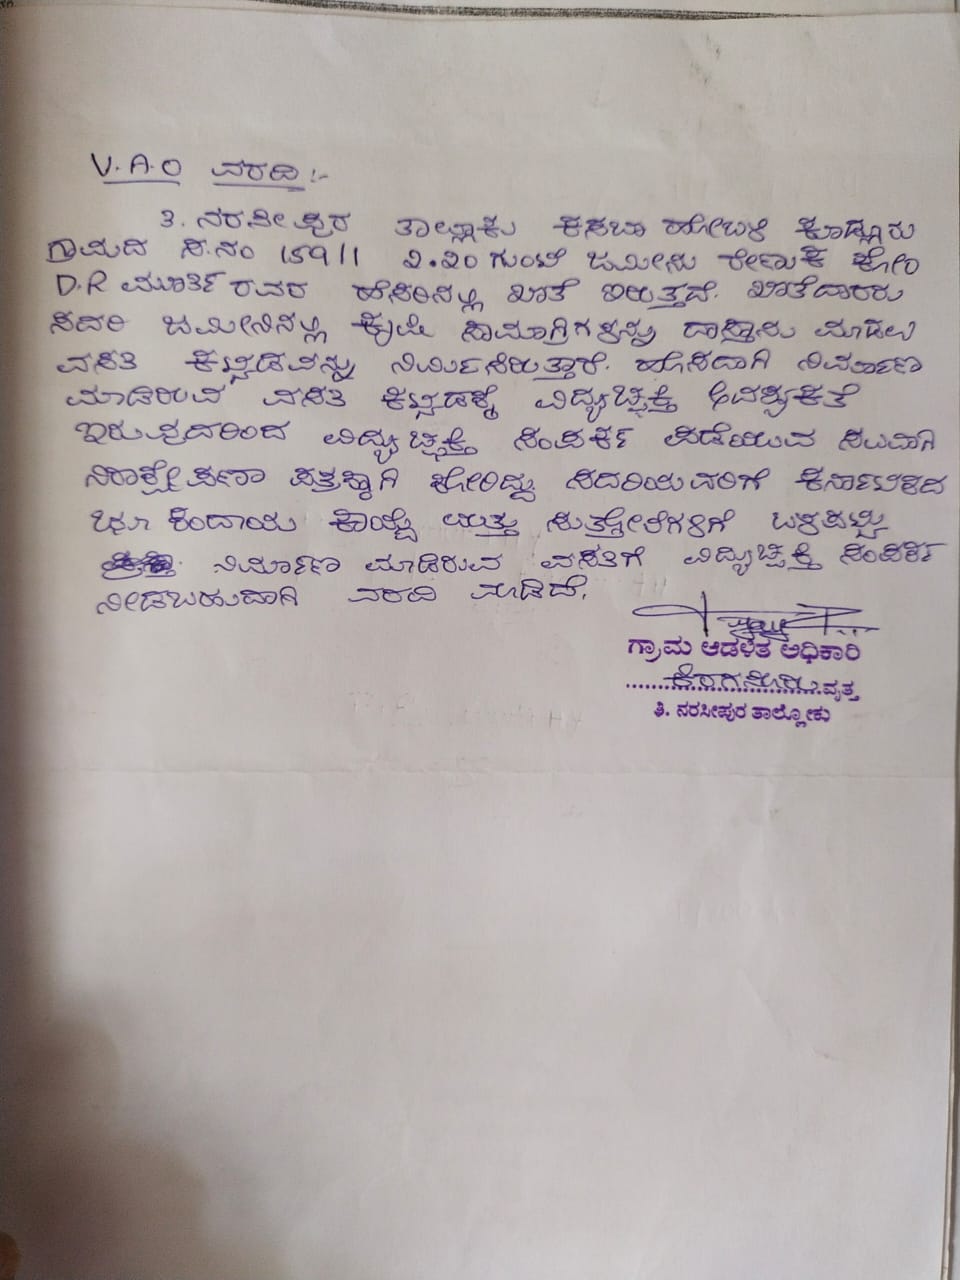 V.A.O ವರದಿ :-
ತಿ. ನರಸೀಪುರ ತಾಲ್ಲೂಕು ಕಸಬಾ ಹೋಬಳಿ ಕೂಡ್ಲೂರು
ಗ್ರಾಮದ ಸ.ನಂ 159/1 2.20 ಗುಂಟೆ ಜಮೀನು ರೇಣುಕ ಕೋಂ
D.R ಮೂರ್ತಿ ರವರ ಹೆಸರಿನಲ್ಲಿ ಖಾತೆ ಇರುತ್ತದೆ. ಖಾತೆದಾರರು
ಸದರಿ ಜಮೀನಿನಲ್ಲಿ ಕೃಷಿ ಸಾಮಾಗ್ರಿಗಳನ್ನು ದಾಸ್ತಾನು ಮಾಡಲು
ವಸತಿ ಕಟ್ಟಡವನ್ನು ನಿರ್ಮಿಸಿರುತ್ತಾರೆ. ಹೊಸದಾಗಿ ನಿರ್ಮಾಣ
ಮಾಡಿರುವ ವಸತಿ ಕಟ್ಟಡಕ್ಕೆ ವಿದ್ಯುಚ್ಛಕ್ತಿ ಅವಶ್ಯಕತೆ
ಇರುವುದರಿಂದ ವಿದ್ಯುಚ್ಛಕ್ತಿ ಸಂಪರ್ಕ ಪಡೆಯುವ ಸಲುವಾಗಿ
ನಿರಾಕ್ಷೇಪಣಾ ಪತ್ರಕ್ಕಾಗಿ ಕೋರಿದ್ದು ಸದರಿಯವರಿಗೆ ಕರ್ನಾಟಕದ
ಭೂ ಕಂದಾಯ ಕಾಯ್ದೆ ಮತ್ತು ಸುತ್ತೋಲೆಗಳಿಗೆ ಒಳಪಟ್ಟು
ನಿರ್ಮಾಣ ಮಾಡಿರುವ ವಸತಿಗೆ ವಿದ್ಯುಚ್ಛಕ್ತಿ ಸಂಪರ್ಕ
ನೀಡಬಹುದಾಗಿ ವರದಿ ಮಾಡಿದೆ.
ಗ್ರಾಮ ಆಡಳಿತ ಅಧಿಕಾರಿ
ವೃತ್ತ
ತಿ. ನರಸೀಪುರ ತಾಲ್ಲೋಕು